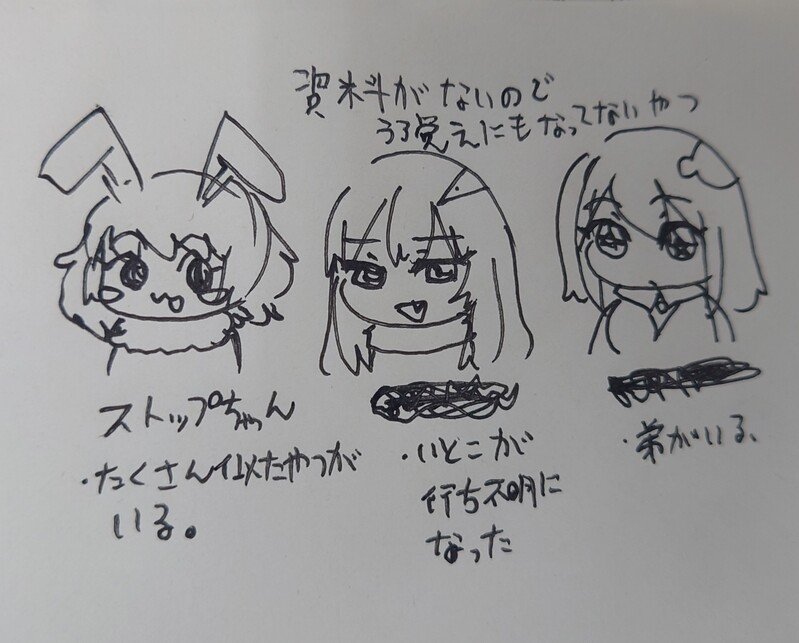 資料がないので
うろ覚えにもなってないやつ
ストップちゃん
・たくさん似たやつが
いる。
・いとこが
行ち不明に
なった
・弟がいる、